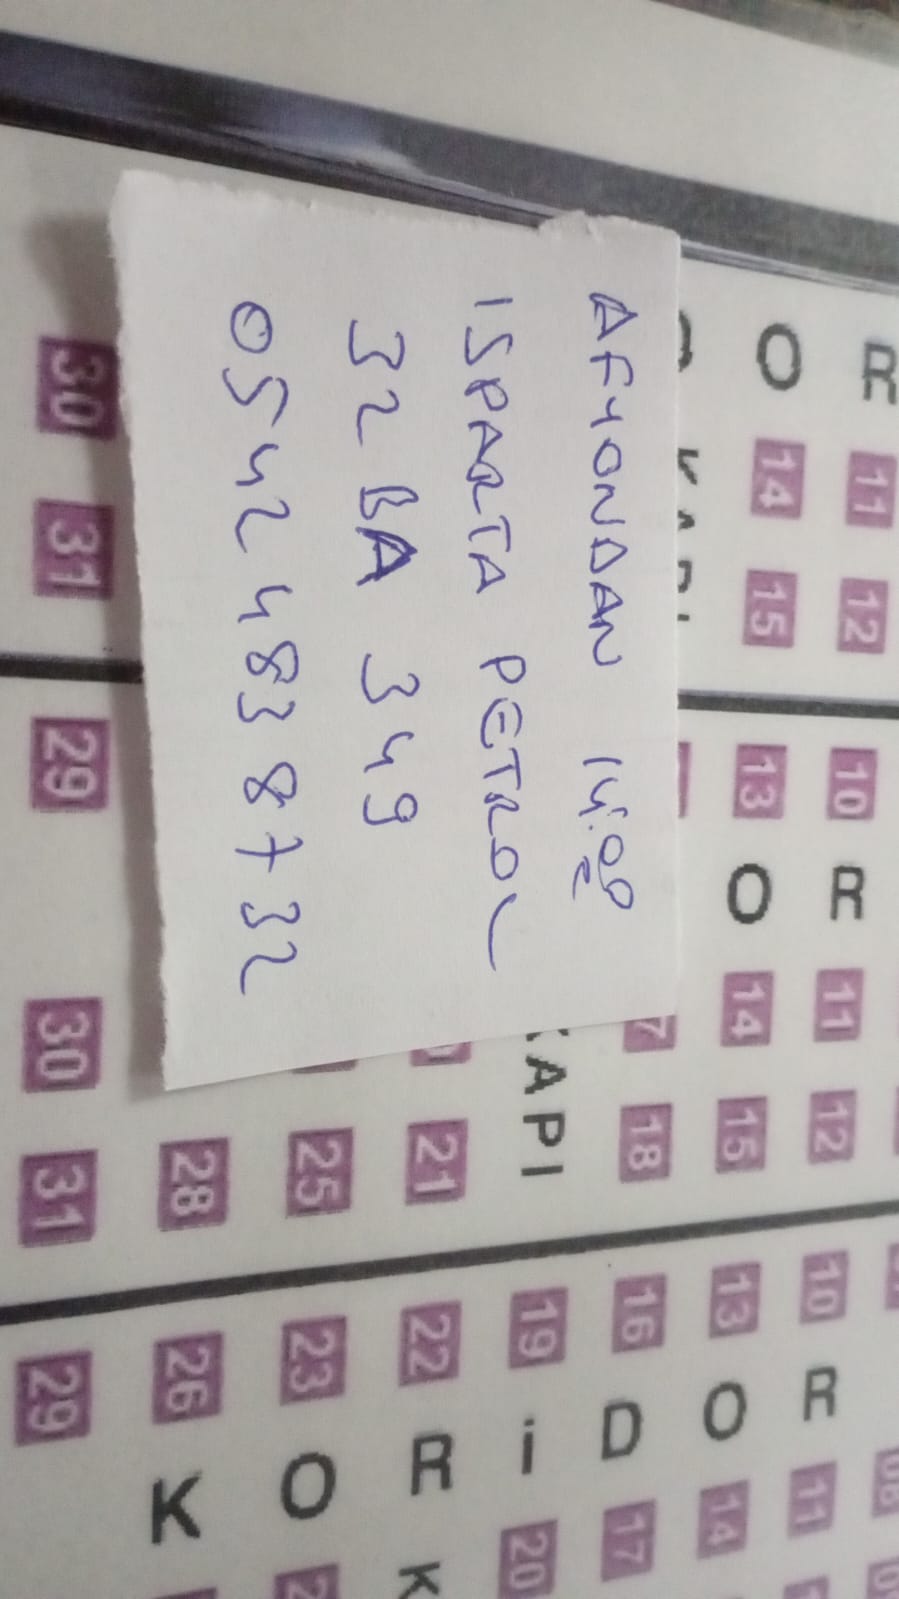 AFYONDAN 14:00
ISPARTA PETROL
32 BA 349
0542 483 8732
OR
OR
KAPI
KORİDOR
K
11
12
10
11
12
10
11
14
15
13
14
15
13
14
18
16
17
21
19
20
25
22
28
23
30
31
29
30
31
26
29